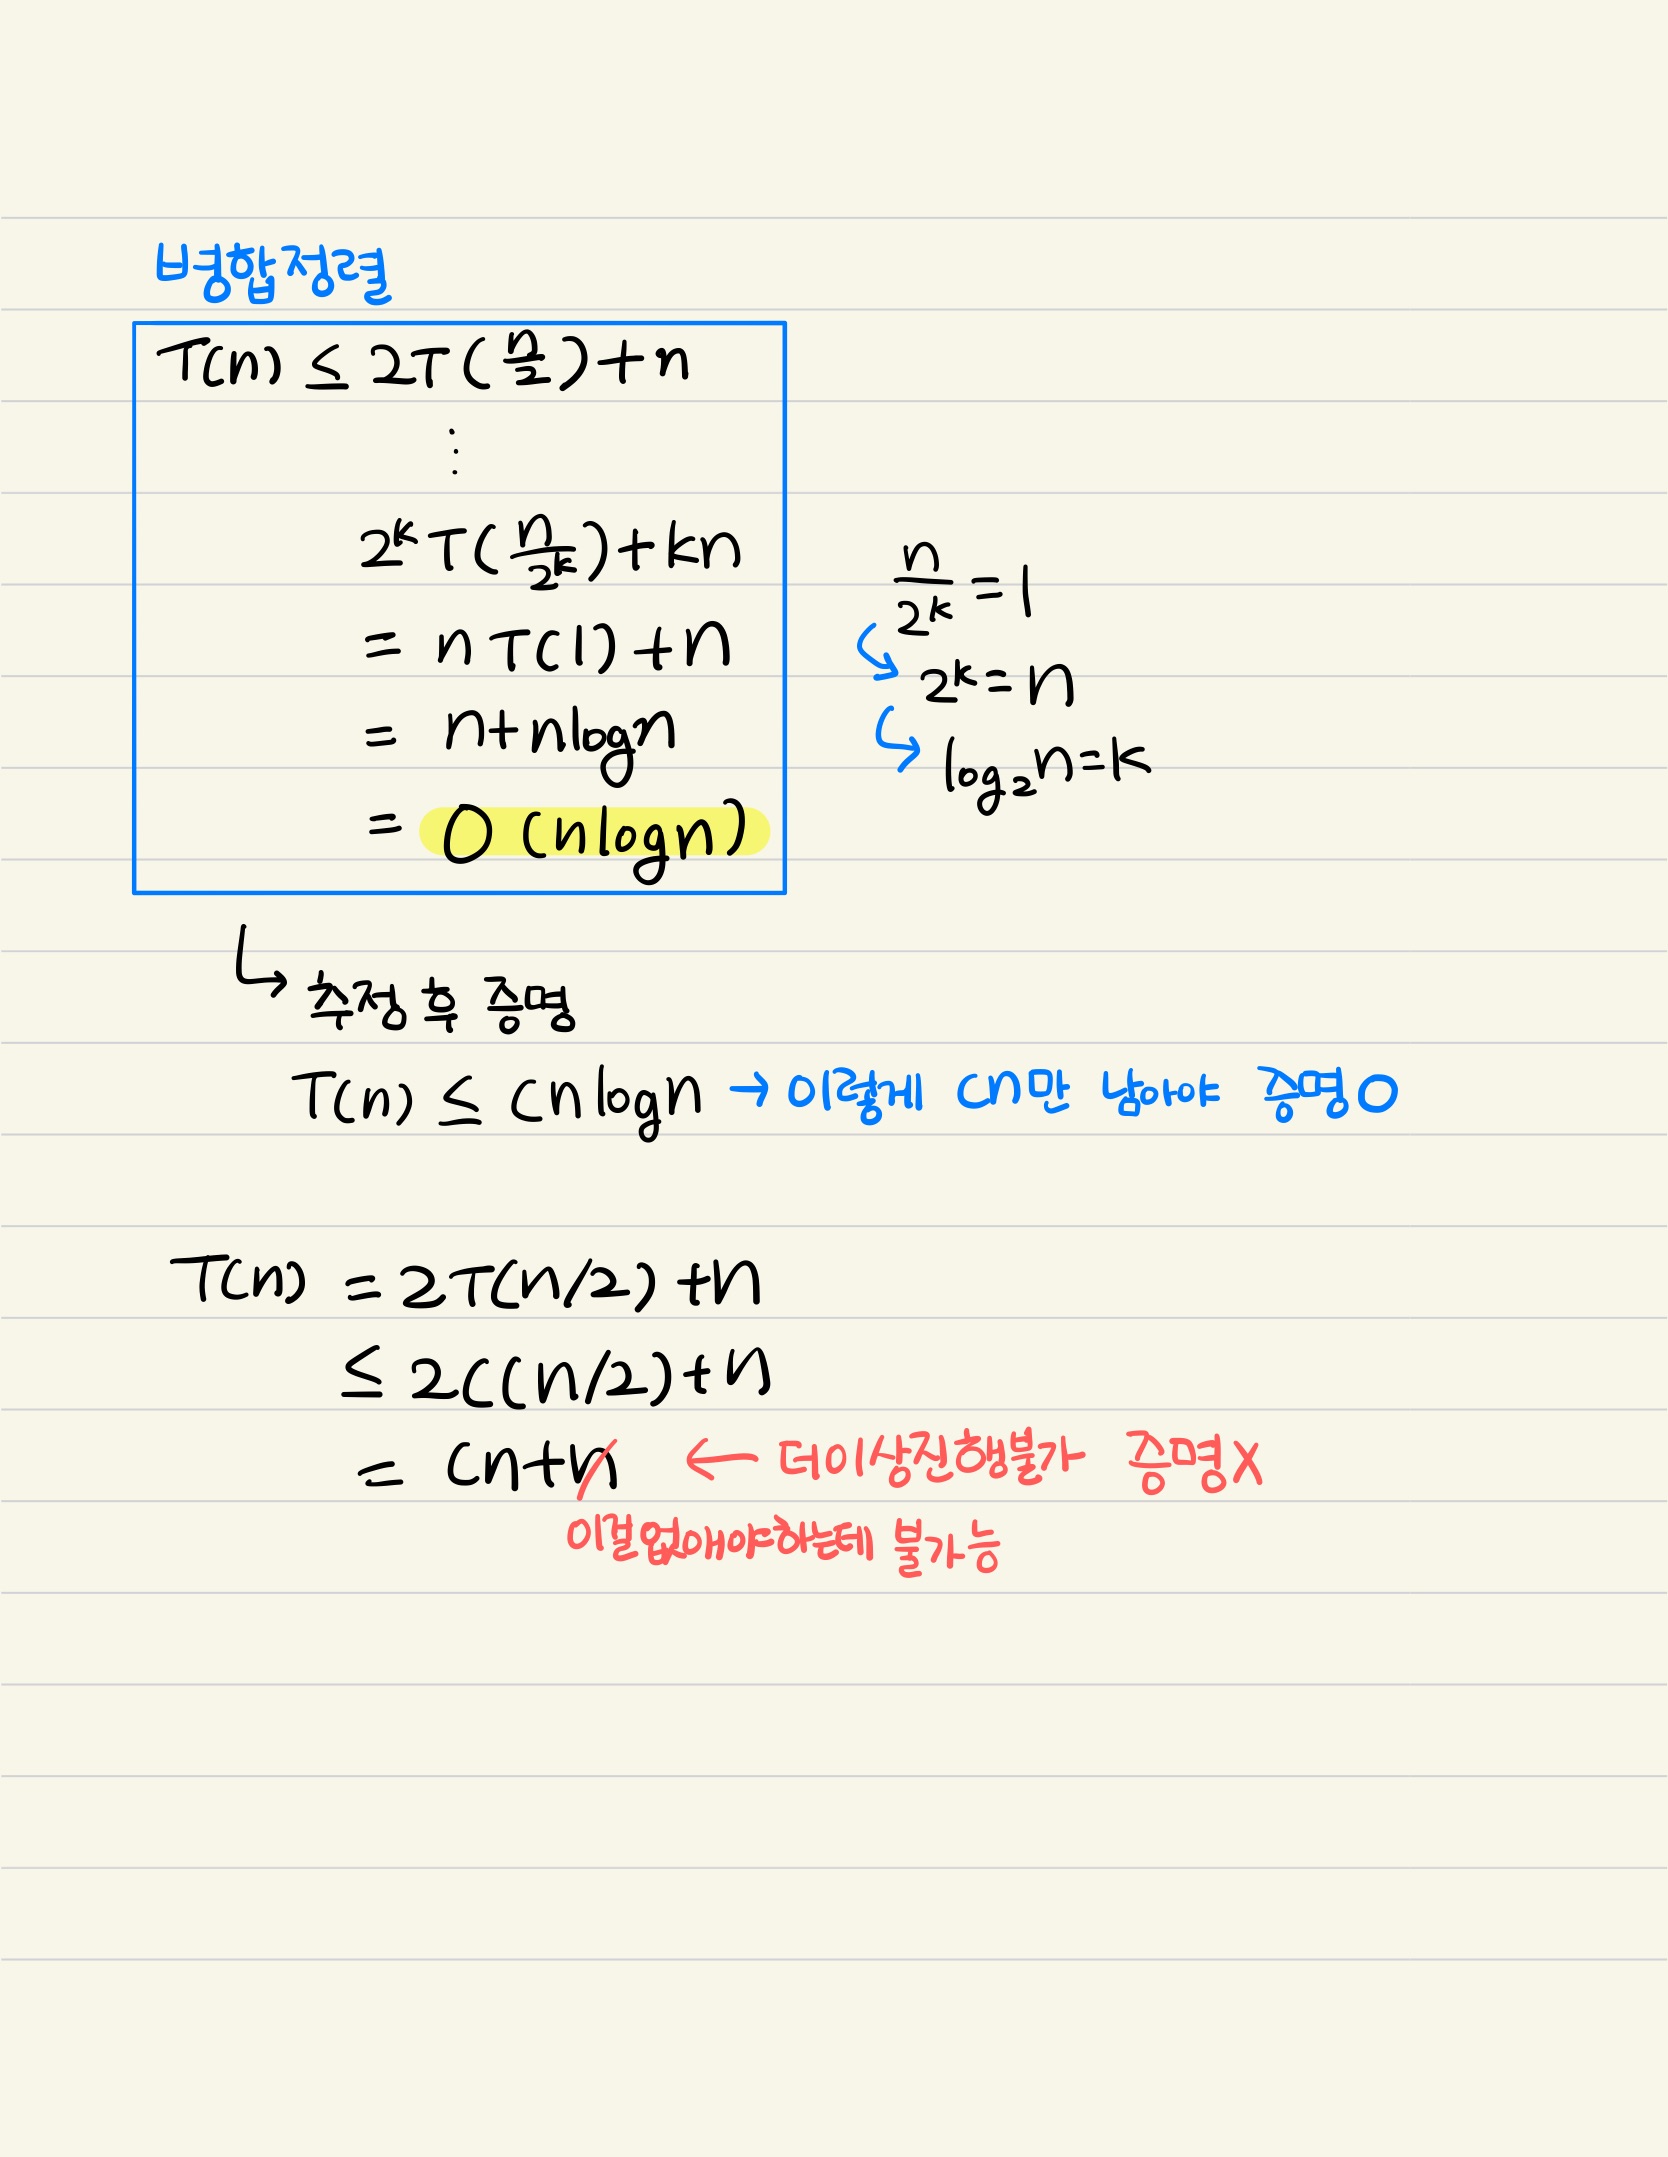 병합정렬
T(n) ≤ 2T(n/2)+n
⋮
2^k T(n/2^k)+kn
= nT(1)+n
= n+nlogn
= O(nlogn)
n/2^k = 1
2^k = n
log₂n = k
추정 후 증명
T(n) ≤ cnlogn → 이렇게 cn만 남아야 증명O
T(n) = 2T(n/2)+n
≤ 2c(n/2)+n
= cn+n ← 더이상진행불가 증명X
이걸없애야하는데 불가능